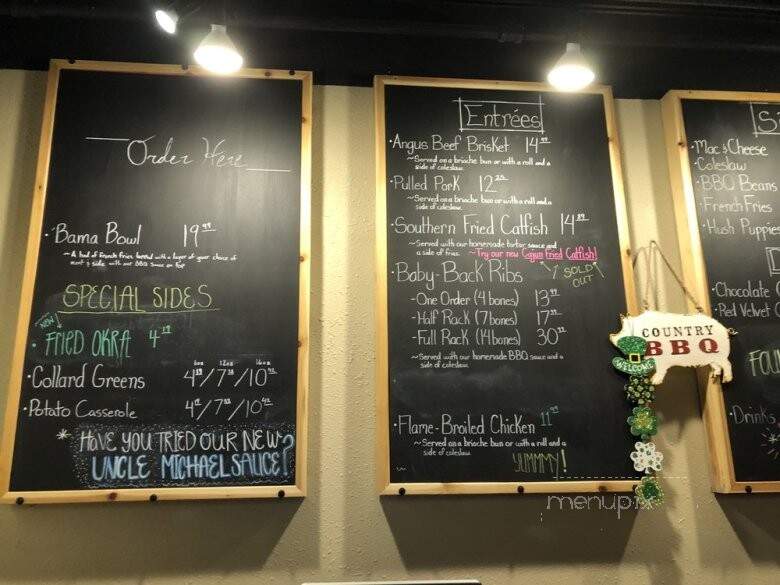 Order Here
·Bama Bowl 19⁹⁹
~A bed of French Fries topped with a layer of your choice of
meat & side with our BBQ sauce on top
SPECIAL SIDES
NEW
·FRIED OKRA 4¹⁹
4oz 12oz 16oz
·Collard Greens 4¹⁹/7/10
·Potato Casserole 4/7/10
* HAVE YOU TRIED OUR NEW
UNCLE MICHAEL SAUCE?
Entrées
·Angus Beef Brisket 14⁹⁹
~Served on a brioche bun or with a roll and a
side of coleslaw.
·Pulled Pork 12
~Served on a brioche bun or with a roll and a
side of coleslaw.
·Southern Fried Catfish 14⁸⁹
~Served with our homemade tartar sauce and
a side of fries. ~Try our new Cajun Fried Catfish!
SOLD
OUT
·Baby-Back Ribs
-One Order (4 bones) 13
-Half Rack (7 bones) 17
-Full Rack (14 bones) 30
~Served with our homemade BBQ sauce and a
side of coleslaw.
·Flame-Broiled Chicken 11
~Served on a brioche bun or with a roll and a
side of coleslaw.
YUMMMY!
·Mac & Cheese
·Coleslaw
·BBQ Beans
·French Fries
·Hush Puppies
·Chocolate
·Red Velvet
·Drinks
COUNTRY
BBQ
WELCOME
menupix